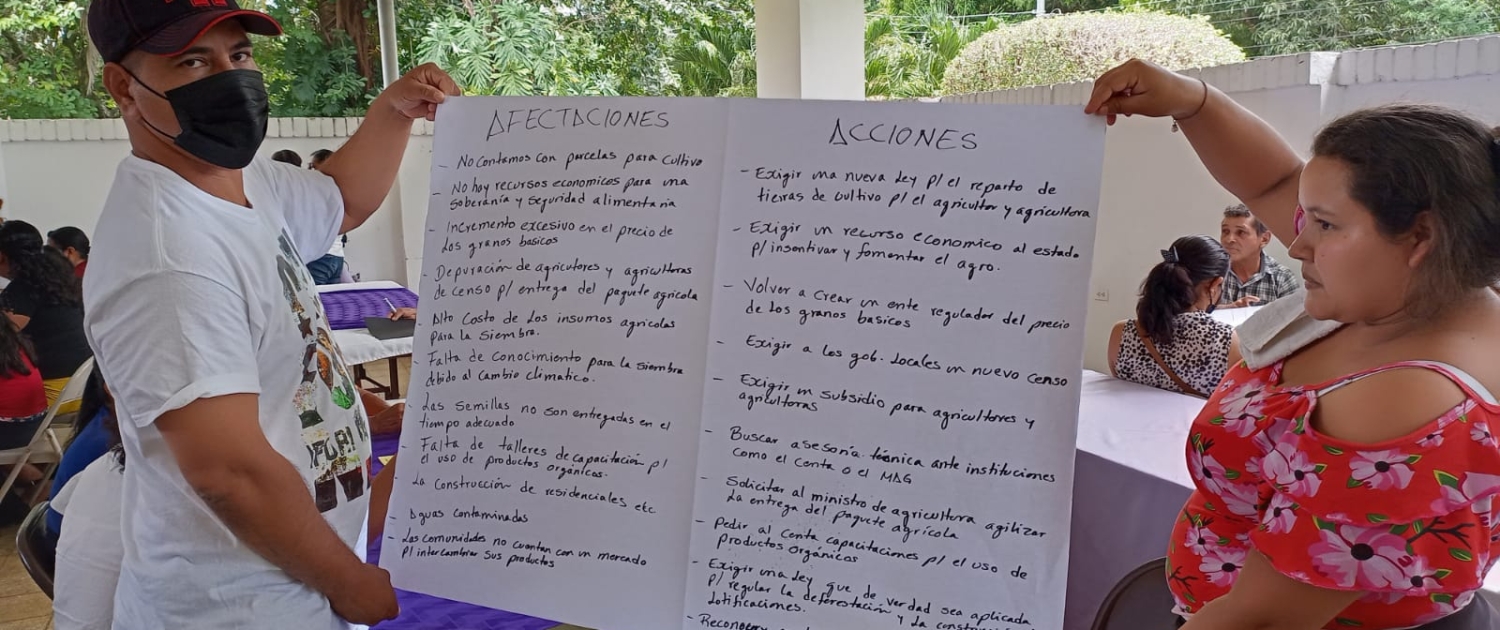 AFECTACIONES
- No Contamos con parcelas para Cultivo
- No hay recursos economicos para una
soberanía y seguridad alimentaria
- Incremento excesivo en el precio de
Los granos basicos
- Depuración de agricutores y agricultoras
de censo p/ entrega del paquete agricola
- Alto Costo de Los insumos agricolas
para La siembra.
- Falta de Conocimiento para la siembra
debido al Cambio climatico.
- Las Semillas no son entregadas en el
tiempo adecuado
- Falta de talleres de capacitación p/
el uso de productos orgánicos.
- La Construcción de residenciales etc
- Aguas Contaminadas
- Las comunidades no cuentan con un mercado
p/ intercambiar sus productos
ACCIONES
- Exigir una nueva Ley p/ el reparto de
tierras de cultivo p/ el agricultor y agricultora
- Exigir un recurso economico al estado
p/ insentivar y fomentar el agro.
- Volver a Crear un ente regulador del precio
de Los granos basicos
- Exigir a los gob. Locales un nuevo Censo
- Exigir un subsidio para agricultores y
agricultoras
- Buscar asesoría técnica ante instituciones
como el Centa o el MAG
- Solicitar al ministro de agricultura agilizar
La entrega del paquete agrícola
- Pedir al Centa capacitaciones p/ el uso de
Productos Orgánicos
- Exigir una Ley que de verdad sea aplicada
p/ regular la deforestación y La
Lotificaciones.